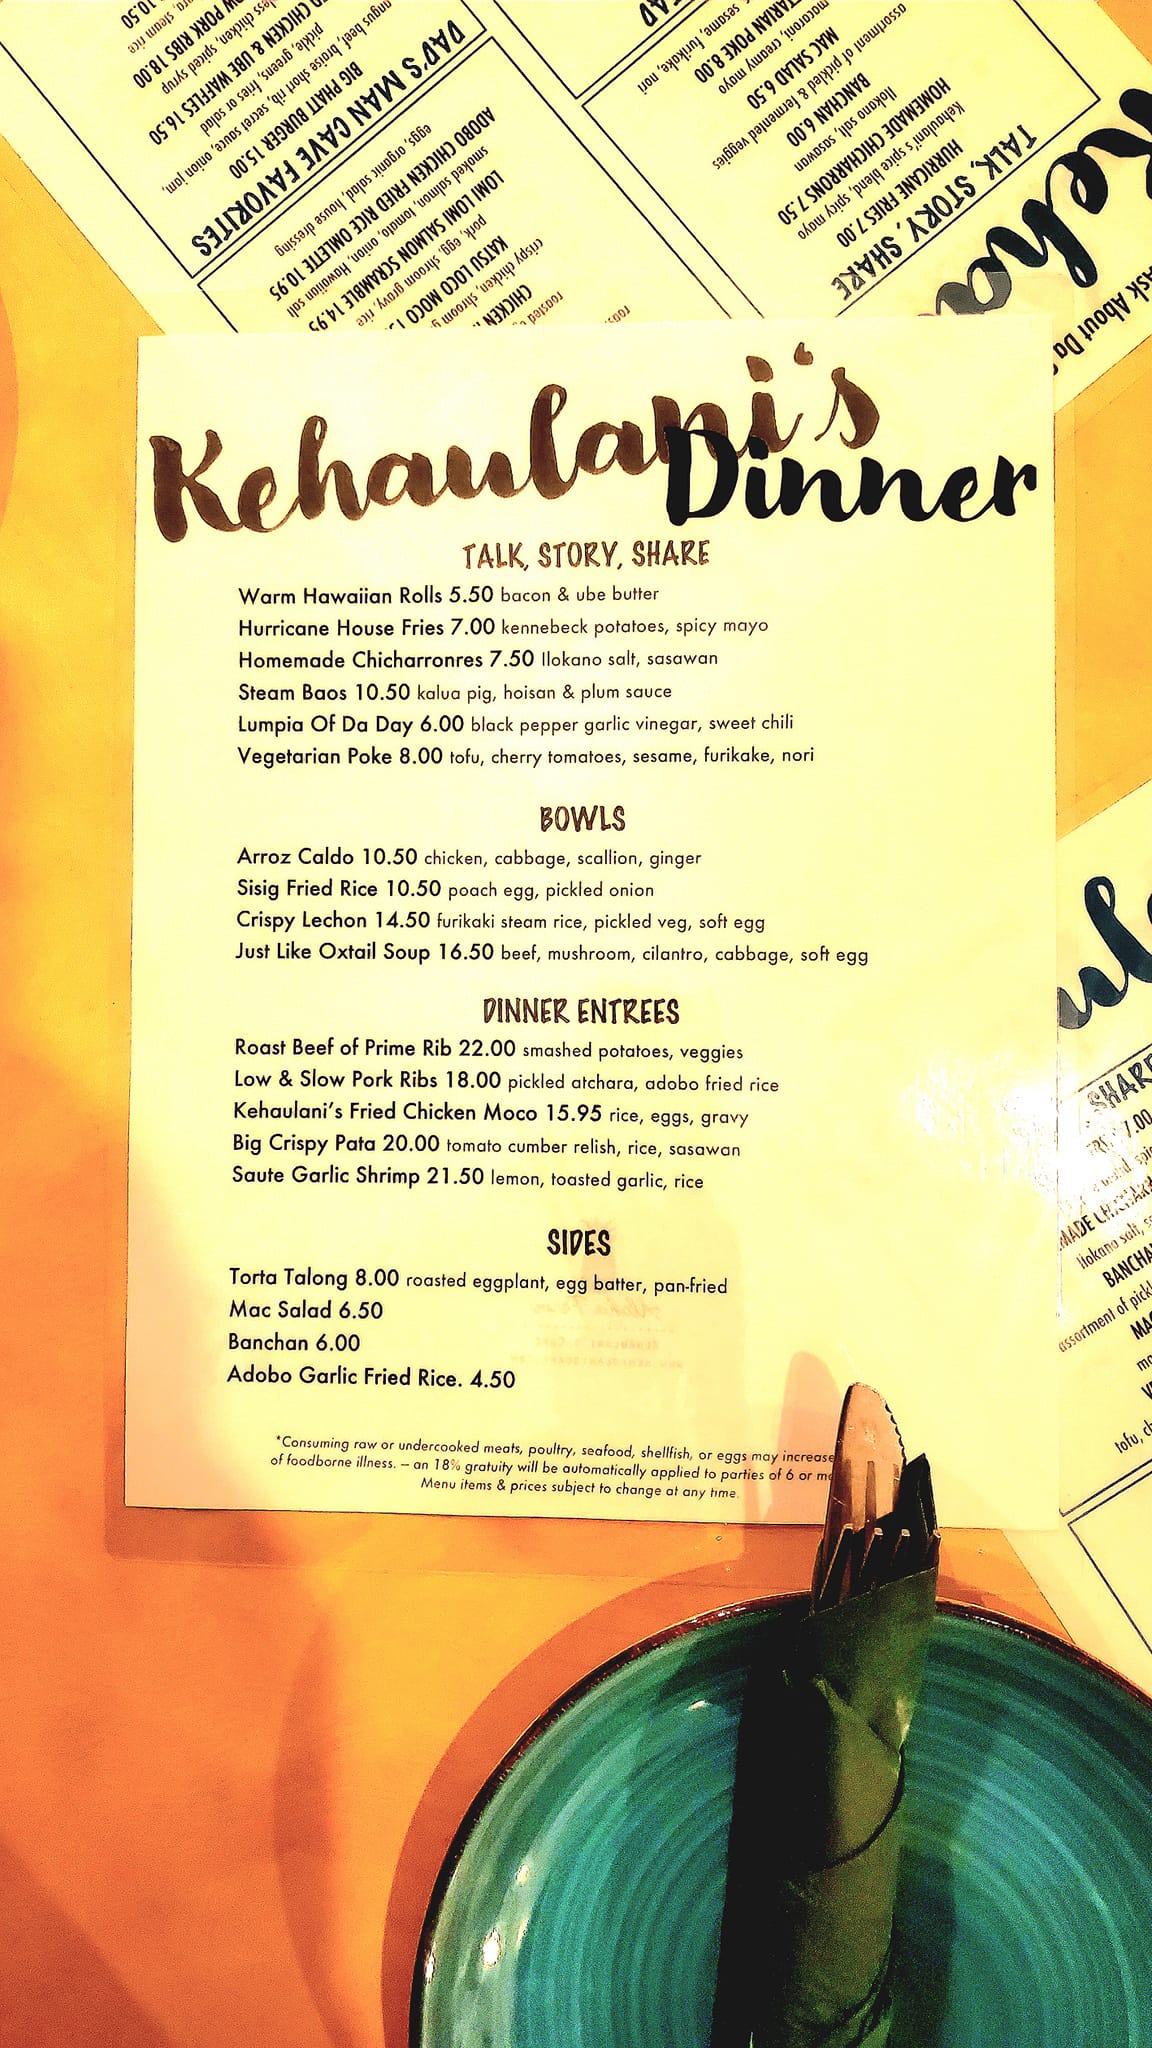 10.50
ara, steam rice
OW PORK RIBS 18.00
less chicken, spiced syrup
CHICKEN & UBE WAFFLES 16.50
pickle, greens, fries or salad
angus beef, braise short rib, secret sauce, onion jam,
BIG PHATT BURGER 15.00
DAD'S MAN CAVE FAVORITES
eggs, organic salad, house dressing
ADOBO CHICKEN FRIED RICE OMLETTE 10.95
smoked salmon, tomato, onion, Hawaiian salt
LOMI LOMI SALMON SCRAMBLE 14.95
pork, egg, shroom gravy, rice
KATSU LOCO MOCO
crispy chicken, shroom
CHICKEN
roasted
sesame, furikake, nori
TARIAN POKE 8.00
macaroni, creamy mayo
MAC SALAD 6.50
assortment of pickled & fermented veggies
BANCHAN 6.00
Ilokano salt, sasawan
HOMEMADE CHICHARRONS 7.50
Kehaulani's spice blend, spicy mayo
HURRICANE FRIES 7.00
TALK, STORY, SHARE
Keha
Ask About Da
Kehaulani's
Dinner
TALK, STORY, SHARE
Warm Hawaiian Rolls 5.50 bacon & ube butter
Hurricane House Fries 7.00 kennebeck potatoes, spicy mayo
Homemade Chicharronres 7.50 Ilokano salt, sasawan
Steam Baos 10.50 kalua pig, hoisan & plum sauce
Lumpia Of Da Day 6.00 black pepper garlic vinegar, sweet chili
Vegetarian Poke 8.00 tofu, cherry tomatoes, sesame, furikake, nori
BOWLS
Arroz Caldo 10.50 chicken, cabbage, scallion, ginger
Sisig Fried Rice 10.50 poach egg, pickled onion
Crispy Lechon 14.50 furikaki steam rice, pickled veg, soft egg
Just Like Oxtail Soup 16.50 beef, mushroom, cilantro, cabbage, soft egg
DINNER ENTREES
Roast Beef of Prime Rib 22.00 smashed potatoes, veggies
Low & Slow Pork Ribs 18.00 pickled atchara, adobo fried rice
Kehaulani's Fried Chicken Moco 15.95 rice, eggs, gravy
Big Crispy Pata 20.00 tomato cumber relish, rice, sasawan
Saute Garlic Shrimp 21.50 lemon, toasted garlic, rice
SIDES
Torta Talong 8.00 roasted eggplant, egg batter, pan-fried
Mac Salad 6.50
Banchan 6.00
Adobo Garlic Fried Rice. 4.50
*Consuming raw or undercooked meats, poultry, seafood, shellfish, or eggs may increase
of foodborne illness. – an 18% gratuity will be automatically applied to parties of 6 or mo
Menu items & prices subject to change at any time.
ula
SHARE
7.00
MADE
Ilokano salt, s
BANCHA
assortment of pickl
MA
tofu, ch